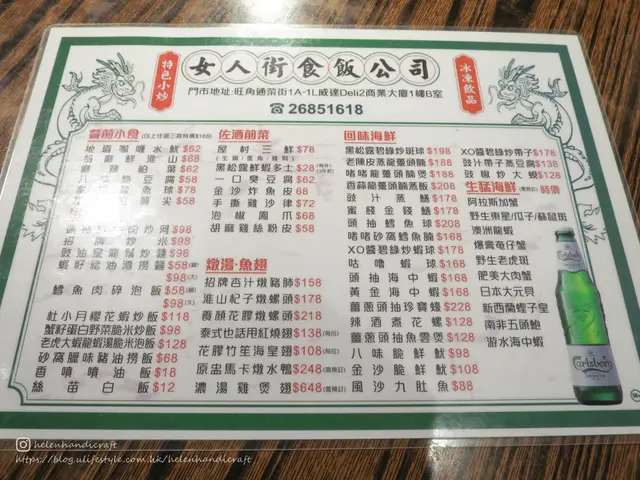 特色小炒
女人街食飯公司
冰凍飲品
門市地址:旺角通菜街1A-1L威達Deli2商業大廈1樓B室
☎26851618
餐前小食
$62
$68
$62
$58
$78
$58
$98
$98
豉油皇龍鬚炒麵$98
蝦籽豬油渣撈麵$58
$98
鱈魚肉碎泡飯$58
$98
杜小月櫻花蝦炒飯$118
蟹籽蛋白野菜脆米炒飯$98
老虎大蝦龍蝦湯脆米泡飯$128
砂窩臘味豬油撈飯$68
香噴噴油飯$18
絲苗白飯$12
佐酒前菜
屋村三鮮$78
黑松露鮮蝦多士$28
一口堅豆腐$62
金沙炸魚皮$68
手撕雞沙律$72
泡椒鳳爪$68
胡麻雞絲粉皮$58
燉湯·魚翅
招牌杏汁燉豬肺$158
淮山杞子燉螺頭$178
養顏花膠燉螺頭$218
泰式也話用紅燒翅$138
花膠竹笙海皇翅$108
原盅馬卡燉水鴨$248
濃湯雞煲翅$648
回味海鮮
黑松露炒斑球$198
老陳皮蒸龍躉頭腩$188
啫啫龍躉頭腩煲$188
百蒜龍躉頭腩蒸飯$208
豉汁蒸鱔$178
蜜餞金錢鱔$178
頭抽鱈魚球$208
啫啫砂窩鱈魚腩$168
XO醬碧綠炒蝦球$178
咕嚕蝦球$168
頭抽海中蝦$168
黃金海中蝦$168
蒜蓉頭抽珍寶蟶$228
辣酒煮花螺$128
蒜蓉頭抽魚雲煲$128
八味脆鮮魷$98
金沙脆鮮魷$108
風沙九肚魚$88
XO醬碧綠炒帶子$178
豉汁帶子蒸豆腐$138
豉椒炒大蜆$128
生猛海鮮 時價
阿拉斯加蟹
野生東星/瓜子/蘇鼠斑
澳洲龍蝦
爆膏奄仔蟹
野生老虎斑
肥美大肉蟹
日本大元貝
新西蘭蟶子皇
南非五頭鮑
游水海中蝦
Carlsberg
helenhandicraft
https://blog.ulifestyle.com.hk/helenhandicraft